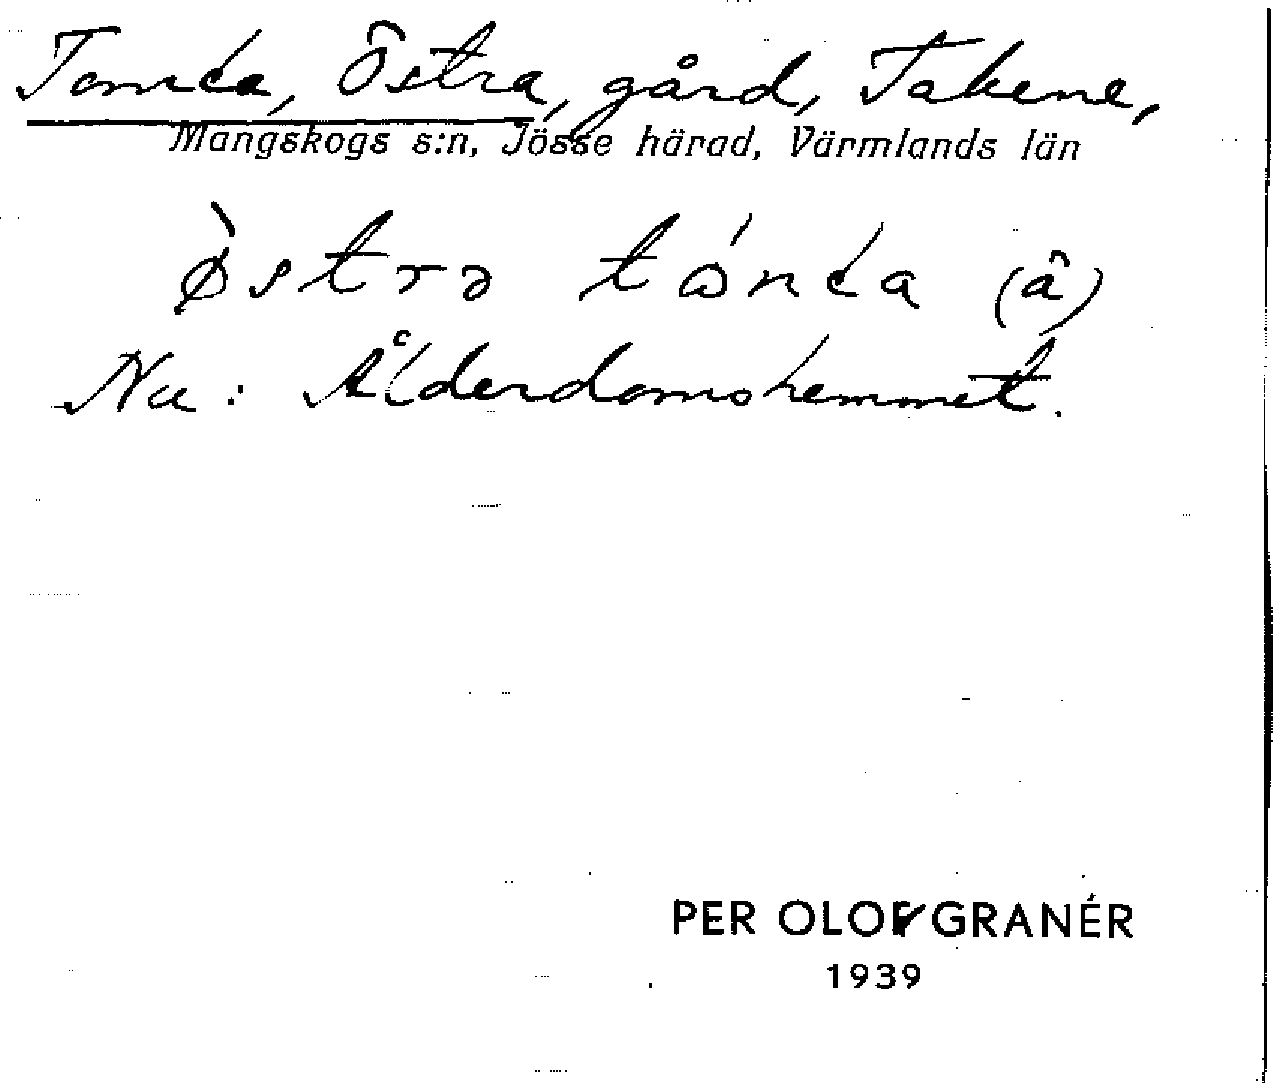 Tomta, Östra, gård, Takene,
Mangskogs s:n, Jösse härad, Värmlands län
(â)
Nu: Ålderdomshemmet.
PER OLOF GRANÉR
1939